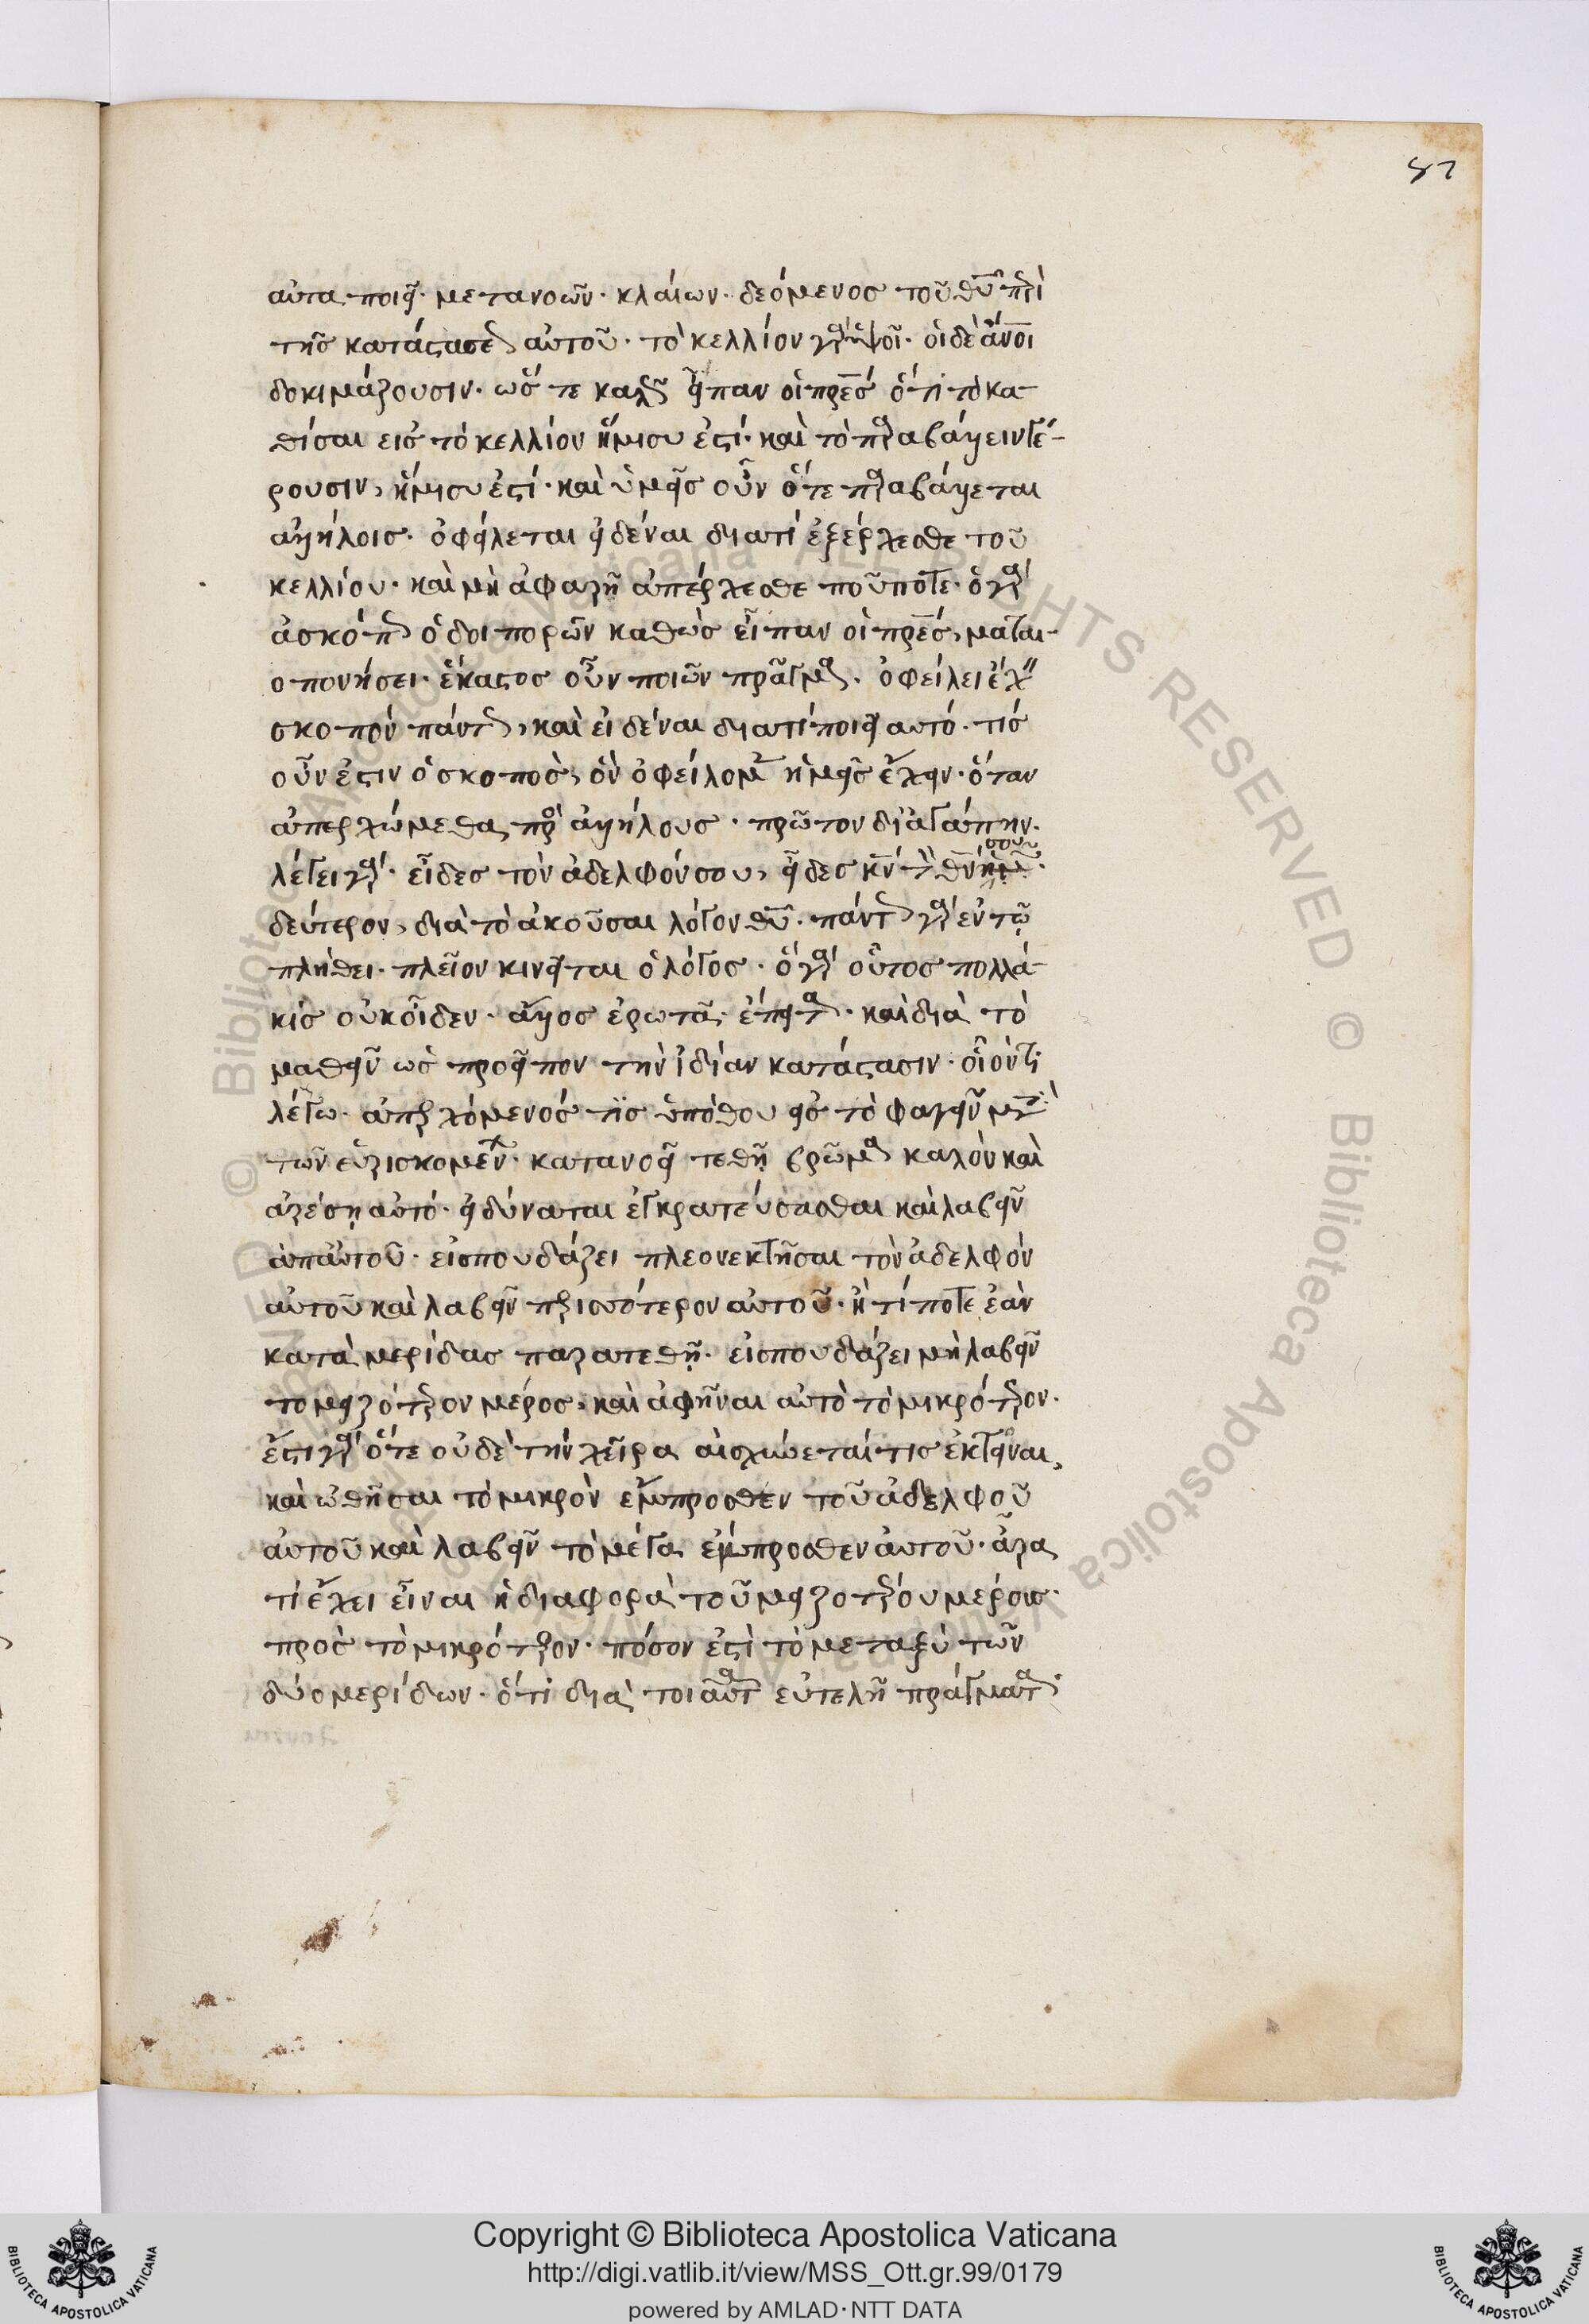 87
αὐτα ποιεῖ· μετανοῶν· κλαίων· δεόμενος τοῦ θῦ περὶ
τῆς καταστάσεως αὐτοῦ· τὸ κελλίον γὰρ ὑψοῖ· οἱ δὲ ἄνοι
δοκιμάζουσιν· ὥστε καλῶς εἶπαν οἱ πρες ὅτι τὸ κα
θίσαι εἰς τὸ κελλίον ἥμισυ ἐστί· καὶ τὸ παραβάλλειν γέ-
ρουσιν, ἥμισυ ἐστί· καὶ ὑμεῖς οὖν ὅτε παραβάλλεται
ἀλλήλοις· ὀφείλεται εἰδέναι διατί ἐξέρχεσθε τοῦ
κελλίου· καὶ μὴ ἀφαλῆ ἀπέρχεσθε ποῦποτε· ὁ γὰρ
ἀσκόπως ὁδοιπορῶν καθὼς εἶπαν οἱ πρες, μαται-
οπονήσει· ἕκαστος οὖν ποιῶν πρᾶγμα· ὀφείλει ἔχειν
σκοπὸν πάντως, καὶ εἰδέναι διατί ποιεῖ αυτό· τίς
οὖν ἐστιν ὁ σκοπὸς, ὃν ὀφείλομεν ἡμεῖς ἔχειν· ὅταν
ἀπερχώμεθα πρὸς ἀλλήλους· πρῶτον δι' ἀγάπην·
λέγει γὰρ· εἶδες τὸν ἀδελφόν σου, εἶδες κν τὸν θν σου·
δεύτερον, διὰ τὸ ἀκοῦσαι λόγον θῦ· πάντως γὰρ ἐν τῷ
πλήθει· πλεῖον κινεῖται ὁ λόγος· ὃ γὰρ οὗτος πολλά
κις οὐκ οἶδεν· ἄλλος ἐρωτᾶ· ἔπειτα· καὶ διὰ τὸ
μαθεῖν ὡς προεῖπον τὴν ἰδίαν κατάστασιν· οἷόν τι
λέγω· ἀπερχόμενός τις ὑπόθου εἰς τὸ φαγεῖν μετὰ
τῶν εὑρισκομένων· κατανοεῖ τεθῆ βρῶμα καλὸν καὶ
ἀρέση αὐτό· εἰ δύναται ἐγκρατεύσασθαι καὶ λαβεῖν
ἀπ' αὐτοῦ· εἰ σπουδάζει πλεονεκτῆσαι τὸν ἀδελφὸν
αὐτοῦ καὶ λαβεῖν περισσότερον αὐτοῦ· ἢ τίποτε ἐὰν
κατὰ μερίδας παρατεθῆ· εἰ σπουδάζει μὴ λαβεῖν
το μειζότερον μέρος, καὶ ἀφῆναι αὐτὸ τὸ μικρότερον·
ἔστι γὰρ ὅτε οὐδὲ τὴν χεῖρα αἰσχύνεταί τις ἐκτεῖναι,
καὶ ὠθῆσαι τὸ μικρὸν ἔμπροσθεν τοῦ ἀδελφοῦ
αὐτοῦ καὶ λαβεῖν τὸ μέγα ἔμπροσθεν αὐτοῦ· ἆρα
τί ἔχει εἶναι ἡ διαφορὰ τοῦ μειζοτέρου μέρους
πρὸς τὸ μικρότερον· πόσον ἐστὶ τὸ μεταξὺ τῶν
δύο μερίδων· ὅτι διὰ τοιαῦτα εὐτελῆ πράγματα
Copyright © Biblioteca Apostolica Vaticana
http://digi.vatlib.it/view/MSS_Ott.gr.99/0179
powered by AMLAD·NTT DATA